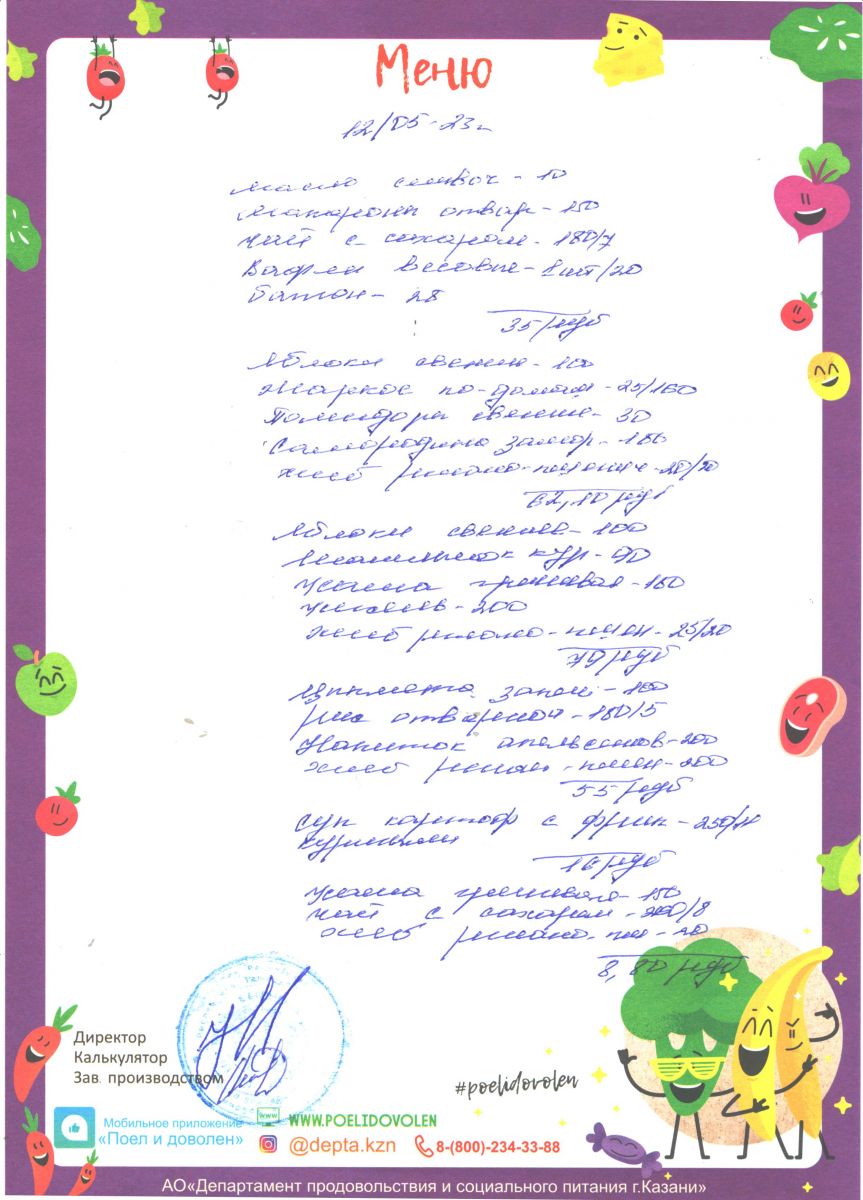 Меню
12/05-23г
масло сливоч - 10
Макароны отвар - 150
чай с сахаром - 180/7
Вафли весовые - 1шт/20
Батон - 28
35 руб
Яблоки свежие - 100
Жаркое по-домаш - 25/160
Помидоры свежие - 30
Смородина замор -
хлеб ржано-пшенич - 20/20
62,10 руб
Яблоки свежие - 100
Шницель кур - 90
Каша гречневая - 150
Кисель - 200
хлеб ржано-пшен - 25/20
руб
запеч - 100
рис отварной - 180/5
Напиток апельсинов - 200
хлеб ржан - пшен - 200
55 руб
Суп картоф с фрик - 250/
куриными
16 руб
Каша гречневая - 150
чай с сахаром - 200/8
хлеб ржано-пш - 20
8,80 руб
Директор
Калькулятор
Зав. производством
#poelidovolen
Мобильное приложение
«Поел и доволен»
www
WWW.POELIDOVOLEN
@depta.kzn
8-(800)-234-33-88
АО«Департамент продовольствия и социального питания г.Казани»